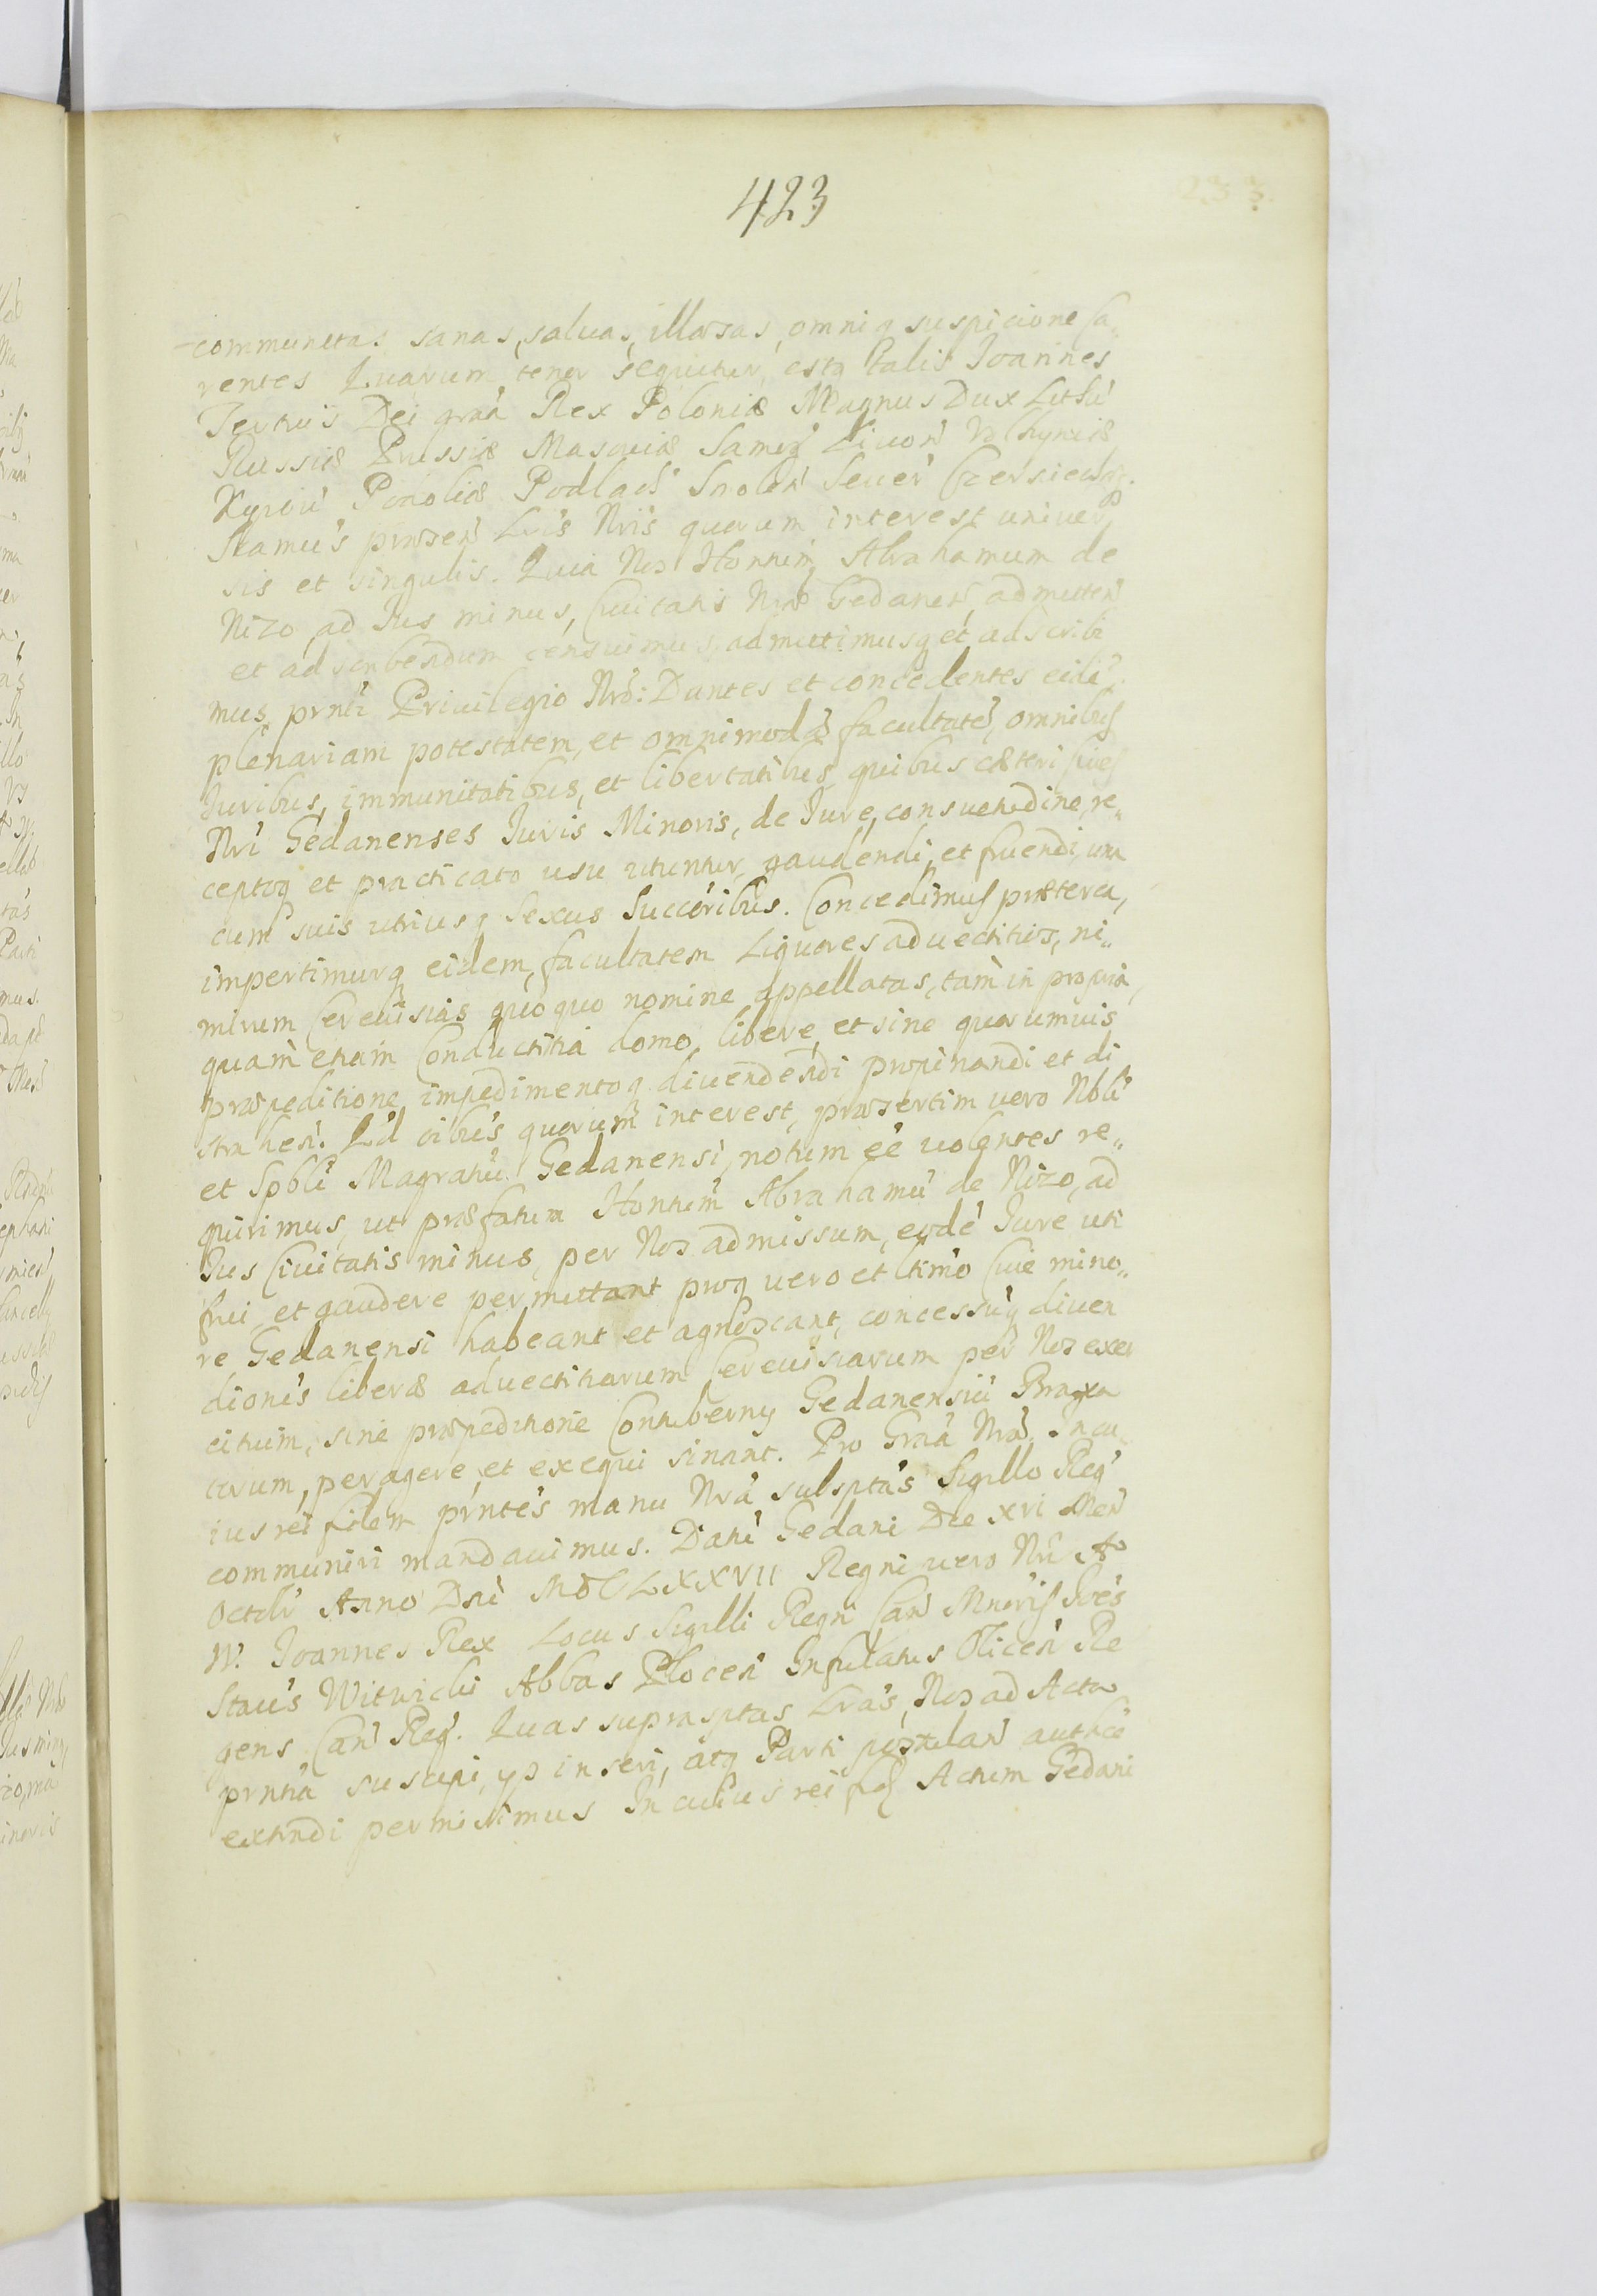 423
communitas sanas, saluas, illæsas, omniq suspicione ca„
rentes Quarum tenor sequitur, estq talis Joannes
Tertius Dei grãa Rex Poloniæ Magnus Dux Lithũ
Russiæ Prussiæ Masouiæ Samog Liuoñ Volhyniæ
Kyiouĩ Podoliæ Podlach Smoleñ Seuer Czerniechq.
Ramus præseñ Lris Nris quorum interest uniuer„
sis et singulis. Quia Nos Honnũm Abrahamum de
Nizo ad Jus minus, Ciuitatis Nræ Gedaneñ admitteñ
et adscribendum censuimus, admittimusq et adscribi
mus prñti Priuilegio Nrõ: Dantes et concedentes eidẽ
plenariam potestatem, et omnimodã facultatẽ, omnibus
Juribus, immunitatibus, et libertatibus quibus cæteri Ciues
Nri Gedanenses Juris Minoris, de Jure, consuetudine, re„
ceptoq et practicato usu utuntur, gaudendi, et fruendi, una
cum suis utriusq Sexus Succõribus. Concedimus præterea,
impertimurq eidem, facultatem Liquores aduectitios, ni„
mirum Cereuisias quoquo nomine appellatas, tam in propria,
quam etiam Conductitia domo, libere, et sine quorumuis
præpeditione impedimentoq diuendendi propinandi et di
straheñ. Qd oibus quorum interest, præsertim uero Nbli
et Spbli Magratui Gedanensi, notum ẽẽ uolentes re„
quirimus, ut præfatum Honnũm Abrahamũ de Nizo, ad
Jus Ciuitatis minus, per Nos admissum, eodẽ Jure uti
frui, et gaudere permittant proq uero et ltimo Ciue mino„
re Gedanensi habeant et agnoscant, concessũq diuen
dionis liberæ aduectitiarum Cereuisiarum per Nos exer
citium, sine præpeditione Contuberny Gedanensiũ Braxa
torum, peragere, et exequi sinant. Pro Grãa Nrã. In cu
ius rei fidem prñtes manu Nra subsptas Sigillo Regñ
communiri mandauimus. Datũ Gedani Die XVI Meñ
Octobr Anno Dñi MDCLXXVII Regni uero Nri Ao
IV. Joannes Rex Locus Sigilli Regni Cañ Mnoris Joẽs
Staus Witwicki Abbas Ploceñ Infulatus Oliceñ Re
gens Cañ Regñ. Quas suprasptas Lras, Nos ad Acta
prñtia suscipi, ijs inseri, atq Parti postulañ authẽ
extradi permisimus In cuius rei fid Actum Gedani